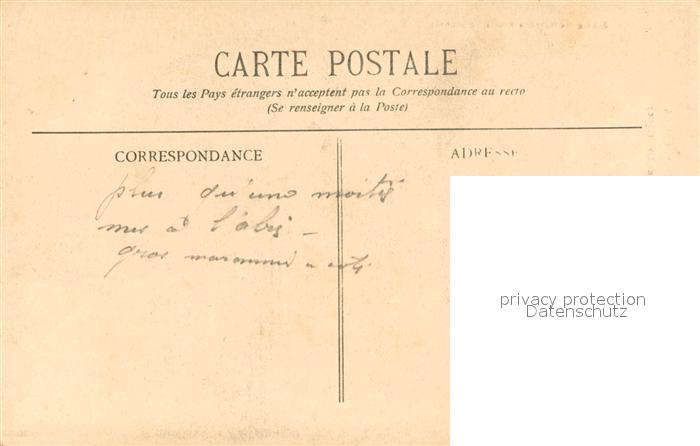 CARTE POSTALE
Tous les Pays étrangers n'acceptent pas la Correspondance au recto
(Se renseigner à la Poste)
CORRESPONDANCE
ADRESSE
plus qu'une moitié
mer à l'abri —
gros
privacy protection
Datenschutz